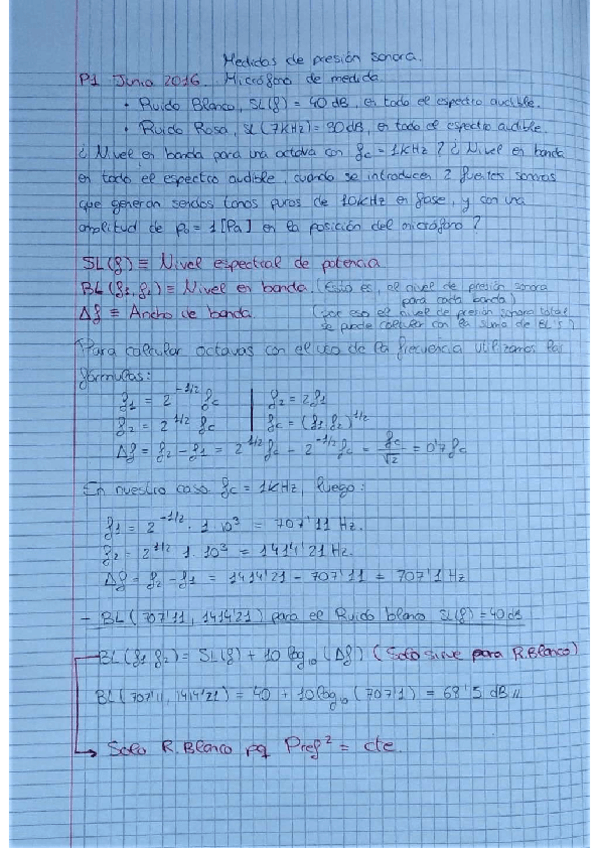 Medidas de presión sonora.
P1 Junio 2016. Micrófono de medida.
• Ruido Blanco, SL(f) = 40 dB, en todo el espectro audible.
• Ruido Rosa, SL(7KHz) = 30dB, en todo el espectro audible.
¿Nivel en banda para una octava con fc = 1KHz? ¿Nivel en banda
en todo el espectro audible, cuando se introducen 2 fuentes sonoras
que generan sendos tonos puros de 10KHz en fase, y con una
amplitud de p0 = 1 [Pa] en la posición del micrófono?
SL(f) ≡ Nivel espectral de potencia
BL(f1, f2) ≡ Nivel en banda. (Esto es, el nivel de presión sonora
para cada banda)
Δf ≡ Ancho de banda. (por eso el nivel de presión sonora total
se puede calcular con la suma de BL's?)
Para calcular octavas con el uso de la frecuencia utilizamos las
fórmulas:
f1 = 2^-1/2 fc | f2 = 2f1
f2 = 2^1/2 fc | fc = (f1 f2)^1/2
Δf = f2 - f1 = 2^1/2 fc - 2^-1/2 fc = fc/√2 = 0'7 fc
En nuestro caso fc = 1KHz, luego:
f1 = 2^-1/2 · 1·10^3 = 707'11 Hz.
f2 = 2^1/2 1·10^3 = 1414'21 Hz.
Δf = f2 - f1 = 1414'21 - 707'11 = 707'1 Hz
- BL(707'11, 1414'21) para el Ruido blanco SL(f) = 40 dB
BL(f1 f2) = SL(f) + 10 log10 (Δf) (Solo sirve para R.Blanco)
BL(707'11, 1414'21) = 40 + 10log10 (707'1) = 68'5 dB //
→ Solo R.Blanco pq Pref^2 = cte.